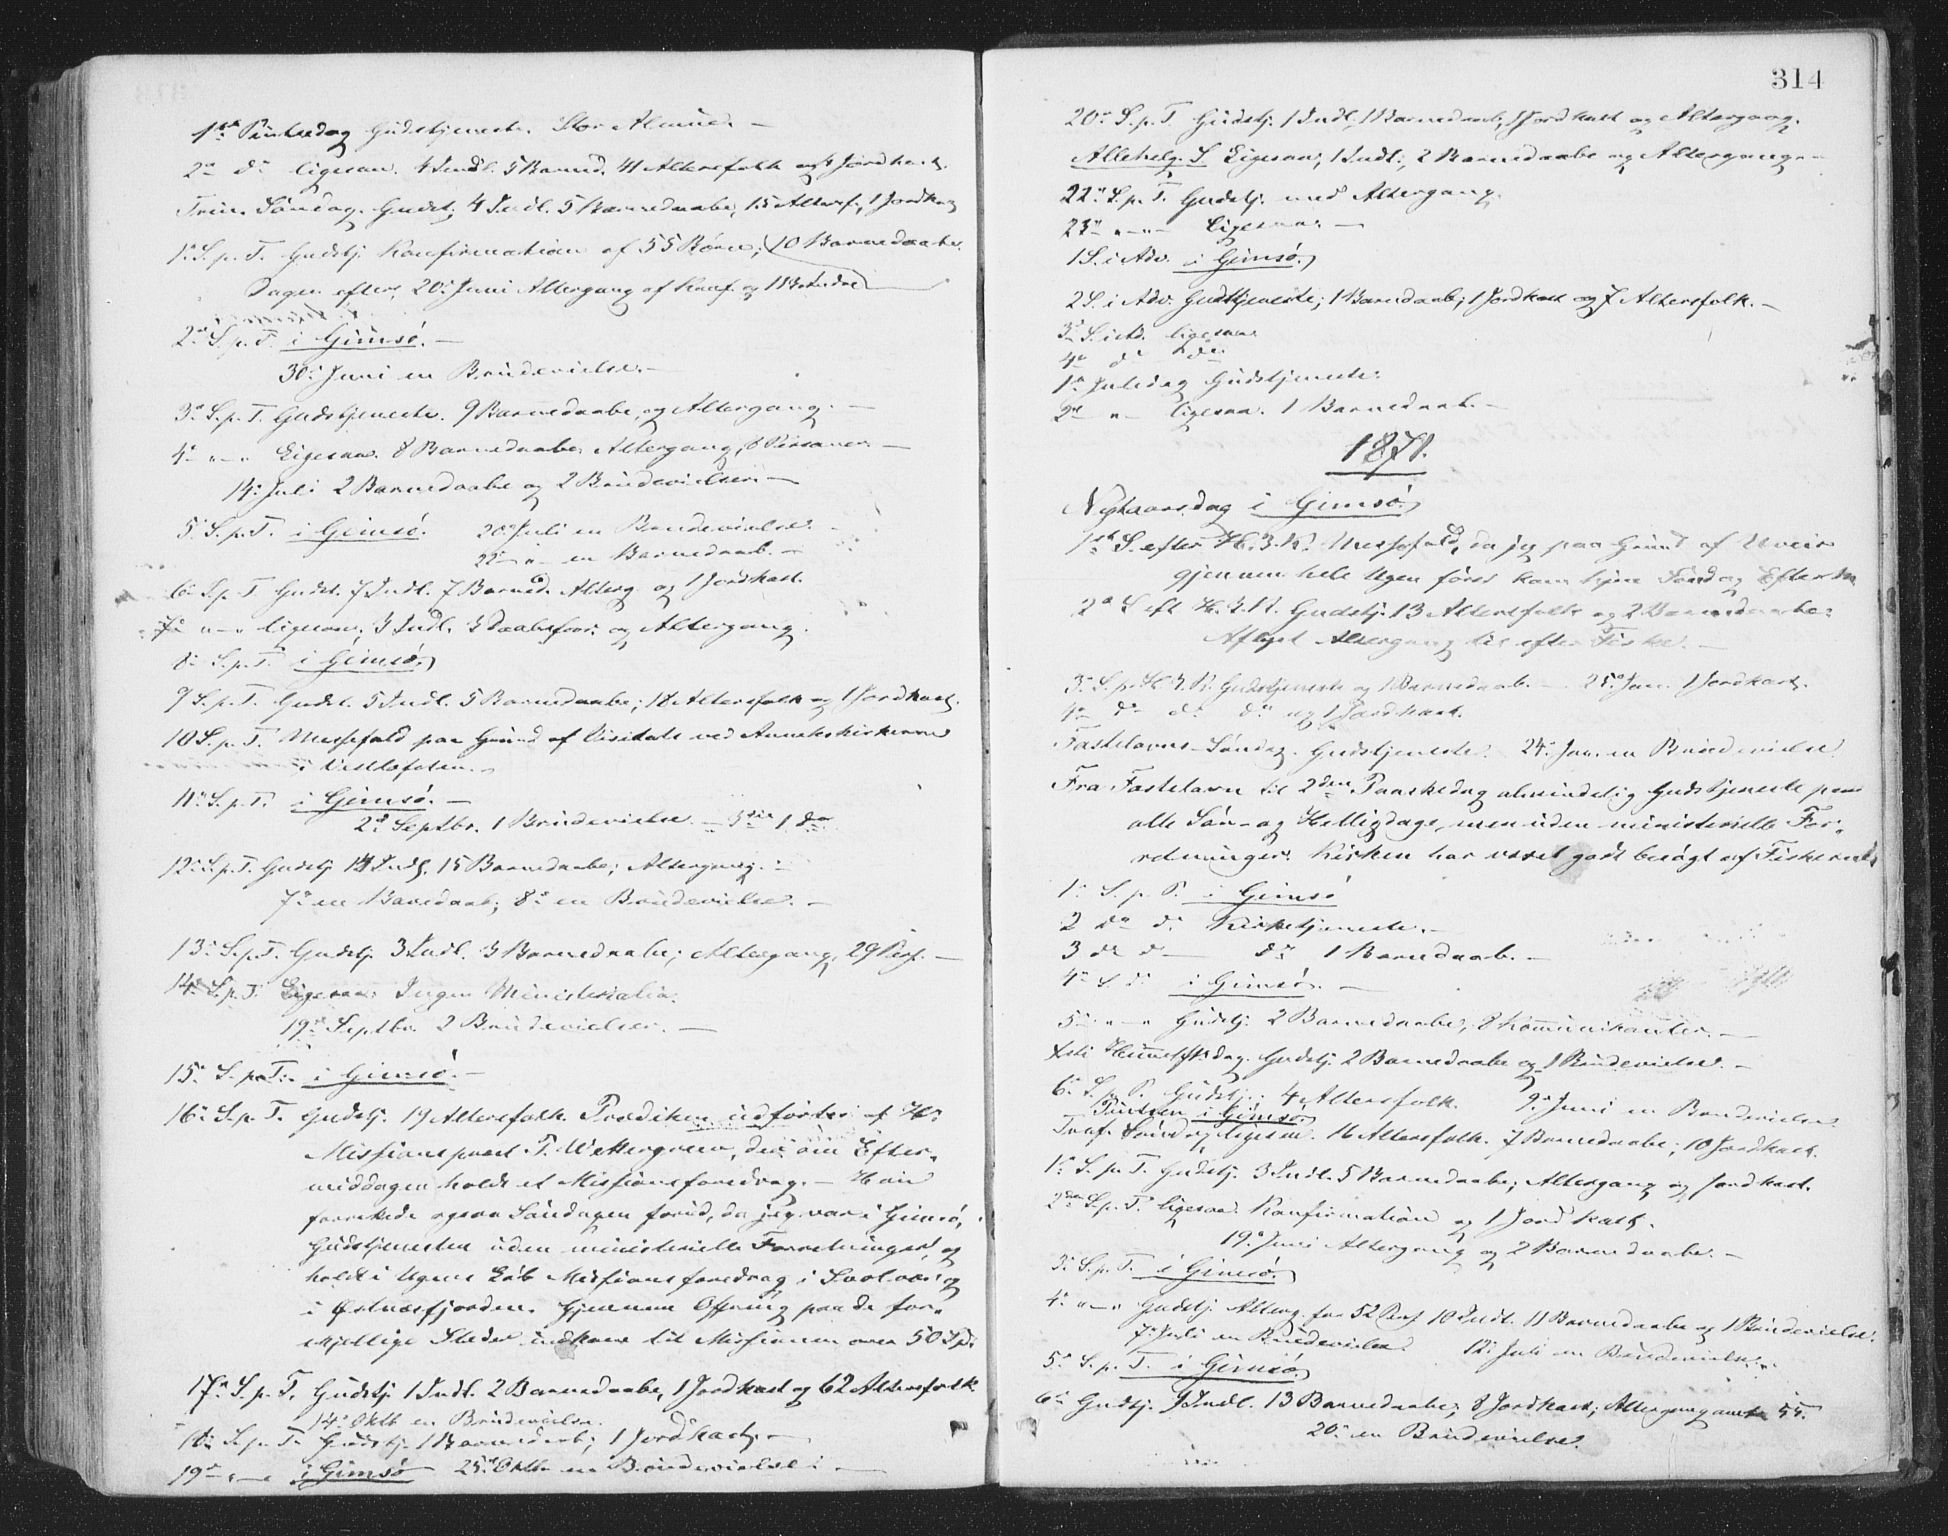 1ste Pintsedag Gudstjeneste. Stor Almue. –
2n do ligesaa. 4 Indl. 5 Barned. 41 Altersfolk og 1 Jordkast.
Trin. Søndag. Gudst. 4 Indl. 5 Barnedaabe, 15 Altersf., 1 Jordkast
1n S. p. T. Gudstj. Konfirmation af 55 Børn; 10 Barnedaabe.
Dagen efter, 20n Juni Altergang af Konf. og
2n S. p. T. i Gimsø. –
30n Juni en Brudevielse. –
3n S. p. T. Gudstjeneste. 9 Barnedaabe, og Altergang. –
4n " – " Ligesaa. 8 Barnedaabe. Altergang, 8 Personer. –
14n Juli 2 Barnedaabe og 2 Brudevielser. –
5n S. p. T. i Gimsø. 20n Juli en Brudevielse. –
22n – " – en Barnedaab. –
6n S. p. T. Gudst. 7 Indl. 7 Barned. Alterg og 1 Jordkast.
7n " – " ligesaa. 3 Indl. 3 Daabsforr. og Altergang.
8n S. p. T. i Gimsø.
9 S. p. T. Gudst. 5 Indl. 5 Barnedaabe; 18 Altersfolk og 1 Jordkast.
10 S. p. T. Messefald paa Grund af Visitats ved Annekskirkerne
i Vestlofoten. –
11n S. p. T. i Gimsø. –
2n Septbr. 1 Brudevielse – 5te 1 do
12n S. p. T. Gudstj. 14 Indl. 15 Barnedaabe; Altergang. –
7n en Barnedaab; 8n en Brudevielse. –
13n S. p. T. Gudstj. 3 Indl. 3 Barnedaabe; Altergang, 29 Pers. –
14n S. p. T. Ligesaa. Ingen Ministerialia.
19n Septbr. 2 Brudevielser. –
15n S. p. T. i Gimsø. –
16n S. p. T. Gudstj. 17 Altersfolk. Prædiken udførtes af Hr
Missionsprest T. Wettergreen, der om Efter-
middagen holdt et Missionsforedrag. – Han
forrettede ogsaa Søndagen forud, da jeg var i Gimsø,
Gudstjenesten uden ministerielle Forretninger, og
holdt i Ugens Løb Missionsforedrag i Svolvær og
i Østnæsfjorden. Gjennem Offring paa de for-
skjellige Steder indkom til Missionen over 50 Spd.
17n S. p. T. Gudstj. 1 Indl. 2 Barnedaabe, 1 Jordkast og 62 Altersfolk
14n Oktb en Brudevielse.
18n S. p. T. Gudstj. 1 Barnedaab; 1 Jordkast. –
19n " – " i Gimsø 25n Oktb en Brudevielse. –
314
20n S. p. T. Gudstj. 1 Indl., 1 Barnedaab, 1 Jordkast og Altergang.
Allehelg. S. Ligesaa, 1 Indl., 2 Barnedaabe og Altergang. –
22n S. p. T. Gudstj. med Altergang.
23n " – " – Ligesaa. –
1 S. i Adv. i Gimsø.
2 S. i Adv. Gudstjeneste; 1 Barnedaab; 1 Jordkast og 7 Altersfolk. –
3n S. i Ad. ligesaa
4n do do
1n Juledag Gudstjeneste.
2n – " – ligesaa. 1 Barnedaab. –
1871.
Nytaarsdag i Gimsø.
1ste S. efter H. 3 K. Messefald, da jeg paa Grund af Uveir
gjennem hele Ugen først kom hjem Søndag Efterm.
2n S. eft. H. 3 K. Gudstj. 13 Altersfolk og 2 Barnedaabe.
Aflyst Altergang til efter Fisket. –
3n S. p. H. 3 K. Gudstjeneste og 1 Barnedaab. – 25n Jan. 1 Jordkast.
4n do do do og 1 Jordkast.
Fastelavns-Søndag. Gudstjeneste. 24n Jan. en Brudevielse
Fra Fastelavn til 2den Paaskedag almindelig Gudstjeneste paa
alle Søn- og Helligdage, men uden ministerielle For-
retninger. Kirken har været godt besøgt af Fiskerne.
1n S. p. P. i Gimsø
2 do do Kirketjeneste. –
3 do d – do 1 Barnedaab. –
4n S. d. i Gimsø. –
5n " – " Gudstj. 2 Barnedaabe, 8 Kommunikanter. –
Kristi Himmelfsdag. Gudstj. 2 Barnedaabe og 1 Brudevielse. –
6n S. p. P. Gudstj.; 4 Altersfolk. 9n Juni en Brudevielse
Pintsen i Gimsø
Tref. Søndag ligesaa. 16 Altersfolk. 7 Barnedaabe; 10 Jordkast.
1n S. p. T. Gudstj. 3 Indl. 5 Barnedaabe; Altergang og Jordkast.
2den S. p. T. ligesaa. Konfirmation og 1 Jordkast.
19n Juni Altergang og 2 Barnedaabe. –
3n S. p. T. i Gimsø.
4n " – " Gudstj. Alterg. for 52 Pers. 10 Indl. 11 Barnedaabe og 1 Brudevielse.
7n Juli en Brudevielse 12n Juli en Brudevielse.
5n S. p. T. i Gimsø.
6n Gudstj. 9 Indl. 13 Barnedaabe; 8 Jordkast; Altergang 55.
20n en Brudevielse.